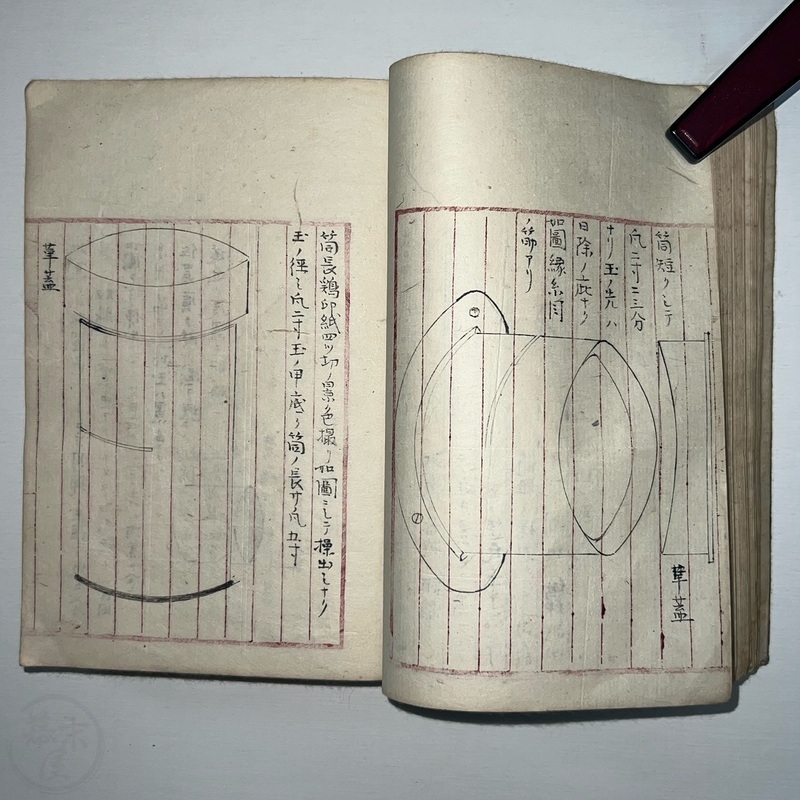 筒短クシテ
凡二寸二三分
ナリ玉ノ先ハ
日除ノ庇ナリ
如圖縁糸目
ノ節アリ
革蓋
筒長鶏卵紙四ツ切ノ景色撮リ如圖ニシテ操出シナリ
玉ノ徑シ凡二寸玉ノ甲底ノ筒ノ長サ凡五寸
革蓋